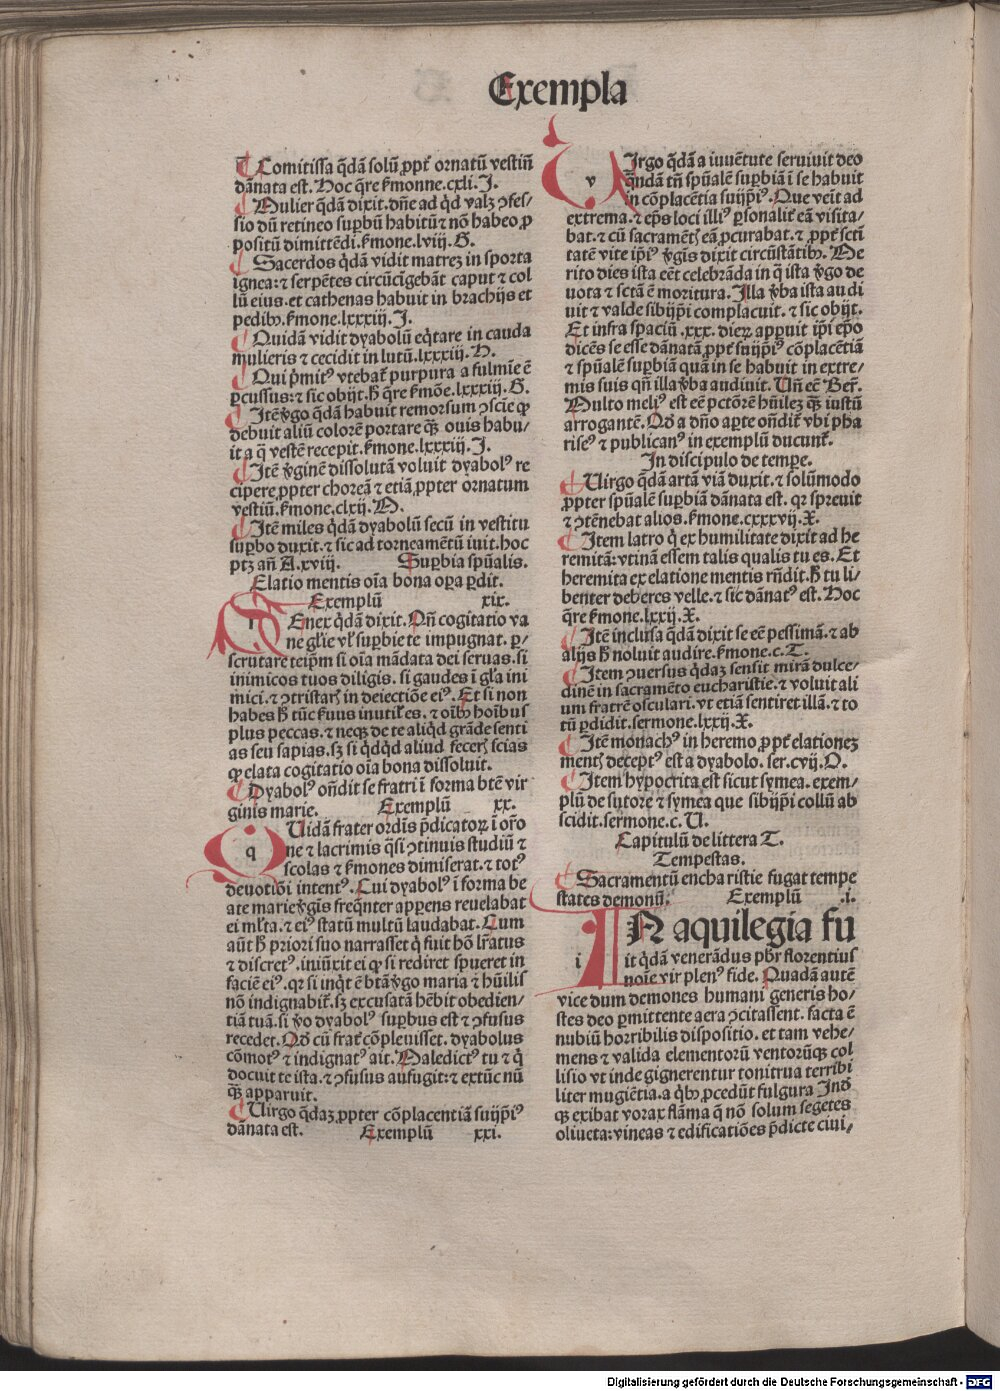 Exempla
¶ Comitissa q̄dā solū ꝓpt̄ ornatū vestiū
dānata est. Hoc q̄re ẜmonne.cxli. J.
¶ Mulier q̄dā dixit. dn̄e ad qͥd valꝫ ꝯfes/
sio dū retineo suꝑbū habitū ⁊ nō habeo ꝓ
positū dimittēdi. ẜmone.lviij. G.
¶ Sacerdos qͥdā vidit matreꝫ in sporta
ignea: ⁊ serpētes circūcigebāt caput ⁊ col
lū eius. et cathenas habuit in brachijs et
pedibꝰ. ẜmone.lxxxiij. J.
¶ Quidā vidit dyabolū eq̄tare in cauda
mulieris ⁊ cecidit in lutū.lxxxiij. H.
¶ Qui pͥmitꝰ vtebat̄ purpura a fulmie ē
ꝑcussus: ⁊ sic obijt. h̄ q̄re ẜmōe.lxxxiij. G.
¶ Itē v̄go q̄dā habuit remorsum ꝯscīe ꝙ
debuit aliū colorē portare qꝫ̄ ouis habu/
it a q̄ vestē recepit. ẜmone.lxxxiij. J.
¶ Itē v̄ginē dissolutā voluit dyabolꝰ re
cipere ꝓpter choreā ⁊ etiā ꝓpter ornatum
vestiū. ẜmone.clxij. N.
¶ Itē miles qͥdā dyabolū secū in vestitu
suꝑbo duxit. ⁊ sic ad torneamētū iuit. hoc
ptꝫ añ A.xviij. Suꝑbia spūalis.
Elatio mentis oīa bona oꝑa ꝑdit.
Exemplū xix.
SEnex qͥdā dixit. Qn̄ cogitatio va
ne gl̄ie vl̓ suꝑbie te impugnat. ꝑ/
scrutare teipm̄ si oīa mādata dei seruas. si
inimicos tuos diligis. si gaudes ī gl̄a ini
mici. ⁊ ꝯtristarꝭ in deiectiōe eiꝰ. Et si non
habes h̄ tūc ẜuus inutil̓ es. ⁊ oībꝰ hoībus
plus peccas. ⁊ neqꝫ de te aliqͥd grāde senti
as seu sapias. sꝫ si qͥdqͥd aliud fecerꝭ scias
ꝙ elata cogitatio oīa bona dissoluit.
¶ Dyabolꝰ on̄dit se fratri ī forma btē vir
ginis marie. Exemplū xx.
QUidā frater ordīs p̄dicatoꝝ ī or̄o
ne ⁊ lacrimis q̄si ꝯtinuis studiū ⁊
scolas ⁊ ẜmones dimiserat. ⁊ totꝰ
deuotiōi intentꝰ. Cui dyabolꝰ ī forma be
ate marie v̄gīs freq̄nter apparens reuelabat
ei ml̓ta. ⁊ eiꝰ statū multū laudabat. Cum
aūt h̄ priori suo narrasset qͥ fuit hō lr̄atus
⁊ discretꝰ. iniūxit ei ꝙ si rediret spueret in
faciē eiꝰ. qꝛ si inqͥt ē btā v̄go maria ⁊ hūilis
nō indignabit̄. sꝫ excusatā hēbit obedien/
tiā tuā. si v̄o dyabolꝰ suꝑbus est ⁊ ꝯfusus
recedet. Qd̄ cū frat̄ cōpleuisset. dyabolus
cōmotꝰ ⁊ indignatꝰ ait. Maledictꝰ tu ⁊ qͥ
docuit te ista. ⁊ ꝯfusus aufugit: ⁊ extūc nū
qꝫ̄ apparuit.
¶ Uirgo q̄daꝫ ꝓpter cōplacentiā suijpīꝰ
dānata est. Exemplū xxi.
UIrgo q̄dā a iuuētute seruiuit deo
q̄ndā tn̄ spūalē suꝑbiā ī se habuit
in cōplacētia suijpīꝰ. Que veīt ad
extrema. ⁊ ep̄s loci illiꝰ ꝑsonalit̄ eā visita/
bat. ⁊ cū sacramētꝭ eā ꝓcurabat. ⁊ ꝓpt̄ sctī
tatē vite ip̄iꝰ v̄gīs dixit circūstātibꝰ. Me
rito dies ista eēt celebrāda in q̄ ista v̄go de
uota ⁊ sctā ē moritura. Illa v̄ba ista audi
uit ⁊ valde sibijpī complacuit. ⁊ sic obijt.
Et infra spaciū .xxx. dieꝝ apꝑuit ip̄i ep̄o
dicēs se esse dānatā ꝓpt̄ suijpīꝰ cōplacētiā
⁊ spūalē suꝑbiā quā in se habuit in extre/
mis suis qn̄ illa v̄ba audiuit. Un̄ eē Ber̄.
Multo meliꝰ est eē pctōrē hūileꝫ qꝫ̄ iustū
arrogantē. Qd̄ a dn̄o aꝑte on̄dit̄ vbi pha
riseꝰ ⁊ publicanꝰ in exemplū ducunt̄.
In discipulo de tempe.
¶ Uirgo q̄dā artā viā duxit. ⁊ solūmodo
ꝓpter spūalē suꝑbiā dānata est. qꝛ spreuit
⁊ ꝯtēnebat alios. ẜmone.cxxxvij. X.
¶ Item latro qͥ ex humilitate dixit ad he
remitā: vtinā essem talis qualis tu es. Et
heremita ex elatione mentis rn̄dit. h̄ tu li/
benter deberes velle. ⁊ sic dānatꝰ est. Hoc
q̄re ẜmone.lxxij. X.
¶ Itē inclusa q̄dā dixit se eē pessimā. ⁊ ab
alijs h̄ noluit audire. ẜmone.c. T.
¶ Item ꝯuersus qͥdaꝫ sensit mirā dulce/
dinē in sacramēto eucharistie. ⁊ voluit ali
um fratrē osculari. vt etiā sentiret illā. ⁊ to
tū ꝑdidit. sermone.lxxij. X.
¶ Itē monachꝰ in heremo ꝓpt̄ elationeꝫ
mentꝭ deceptꝰ est a dyabolo. ser.cvij. O.
¶ Item hypocrita est sicut symea. exem/
plū de sutore ⁊ symea que sibijpī collū ab
scidit. sermone.c. U.
Capitulū de littera T.
Tempestas.
¶ Sacramentū encharistie fugat tempe
states demonū. Exemplū .i.
IN aquilegia fu
it qͥdā venerādus pbr̄ florentius
noīe vir plenꝰ fide. Quadā autē
vice dum demones humani generis ho/
stes deo ꝑmittente aera ꝯcitassent. facta ē
nubiū horribilis dispositio. et tam vehe/
mens ⁊ valida elementorū ventorūqꝫ col
lisio vt inde gignerentur tonitrua terribi
liter mugiētia. a qͥbꝰ ꝓcedūt fulgura Ind̄
qꝫ exibat vorax flāma q̄ nō solum segetes
oliueta: vineas ⁊ edificatiōes p̄dicte ciui/
Digitalisierung gefördert durch die Deutsche Forschungsgemeinschaft - DFG